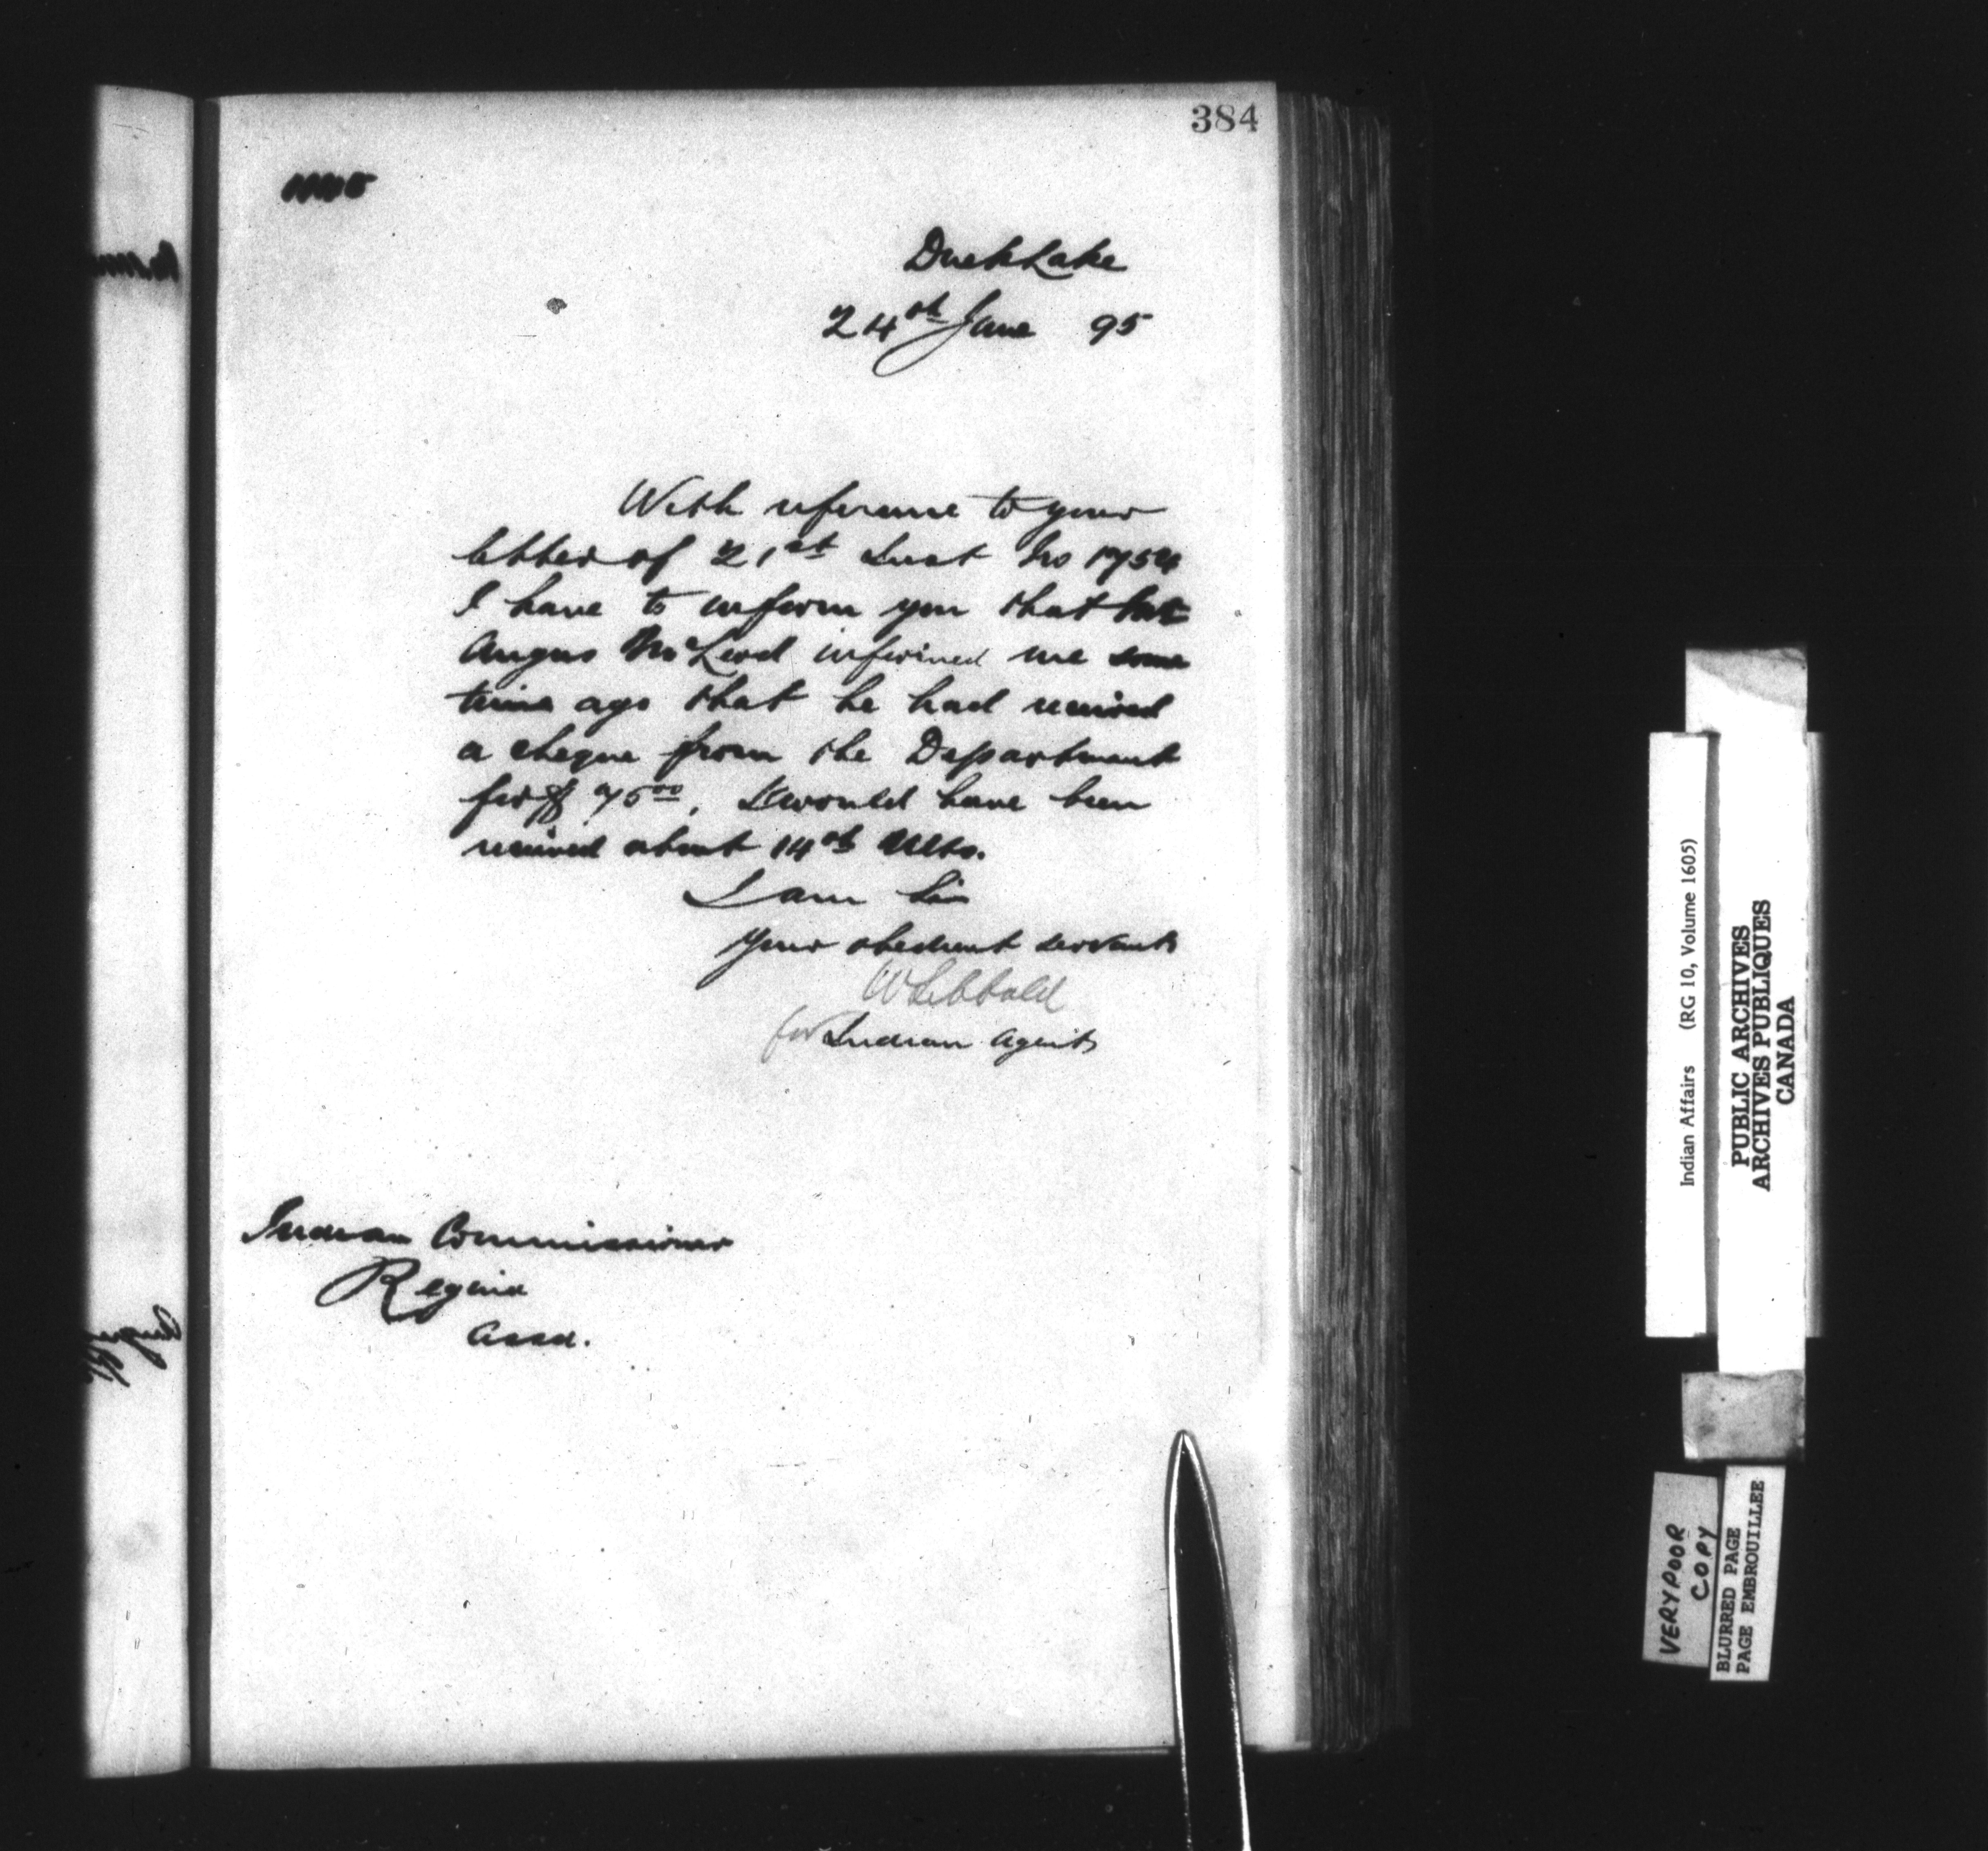 384
Duck Lake
24th June 95
With reference to your
letter of 21st Inst No 1754
I have to inform you that Mr
Angus McLeod informed me some
time ago that he had received
a cheque from the Department
for $75.00, It would have been
received about 14th Ulto.
I am Sir
Your obedient servant
W Sibbald
for Indian Agent
Indian Commissioner
Regina
Assa.
Indian Affairs (RG 10, Volume 1605)
PUBLIC ARCHIVES
ARCHIVES PUBLIQUES
CANADA
VERY POOR
COPY
BLURRED PAGE
PAGE EMBROUILLEE